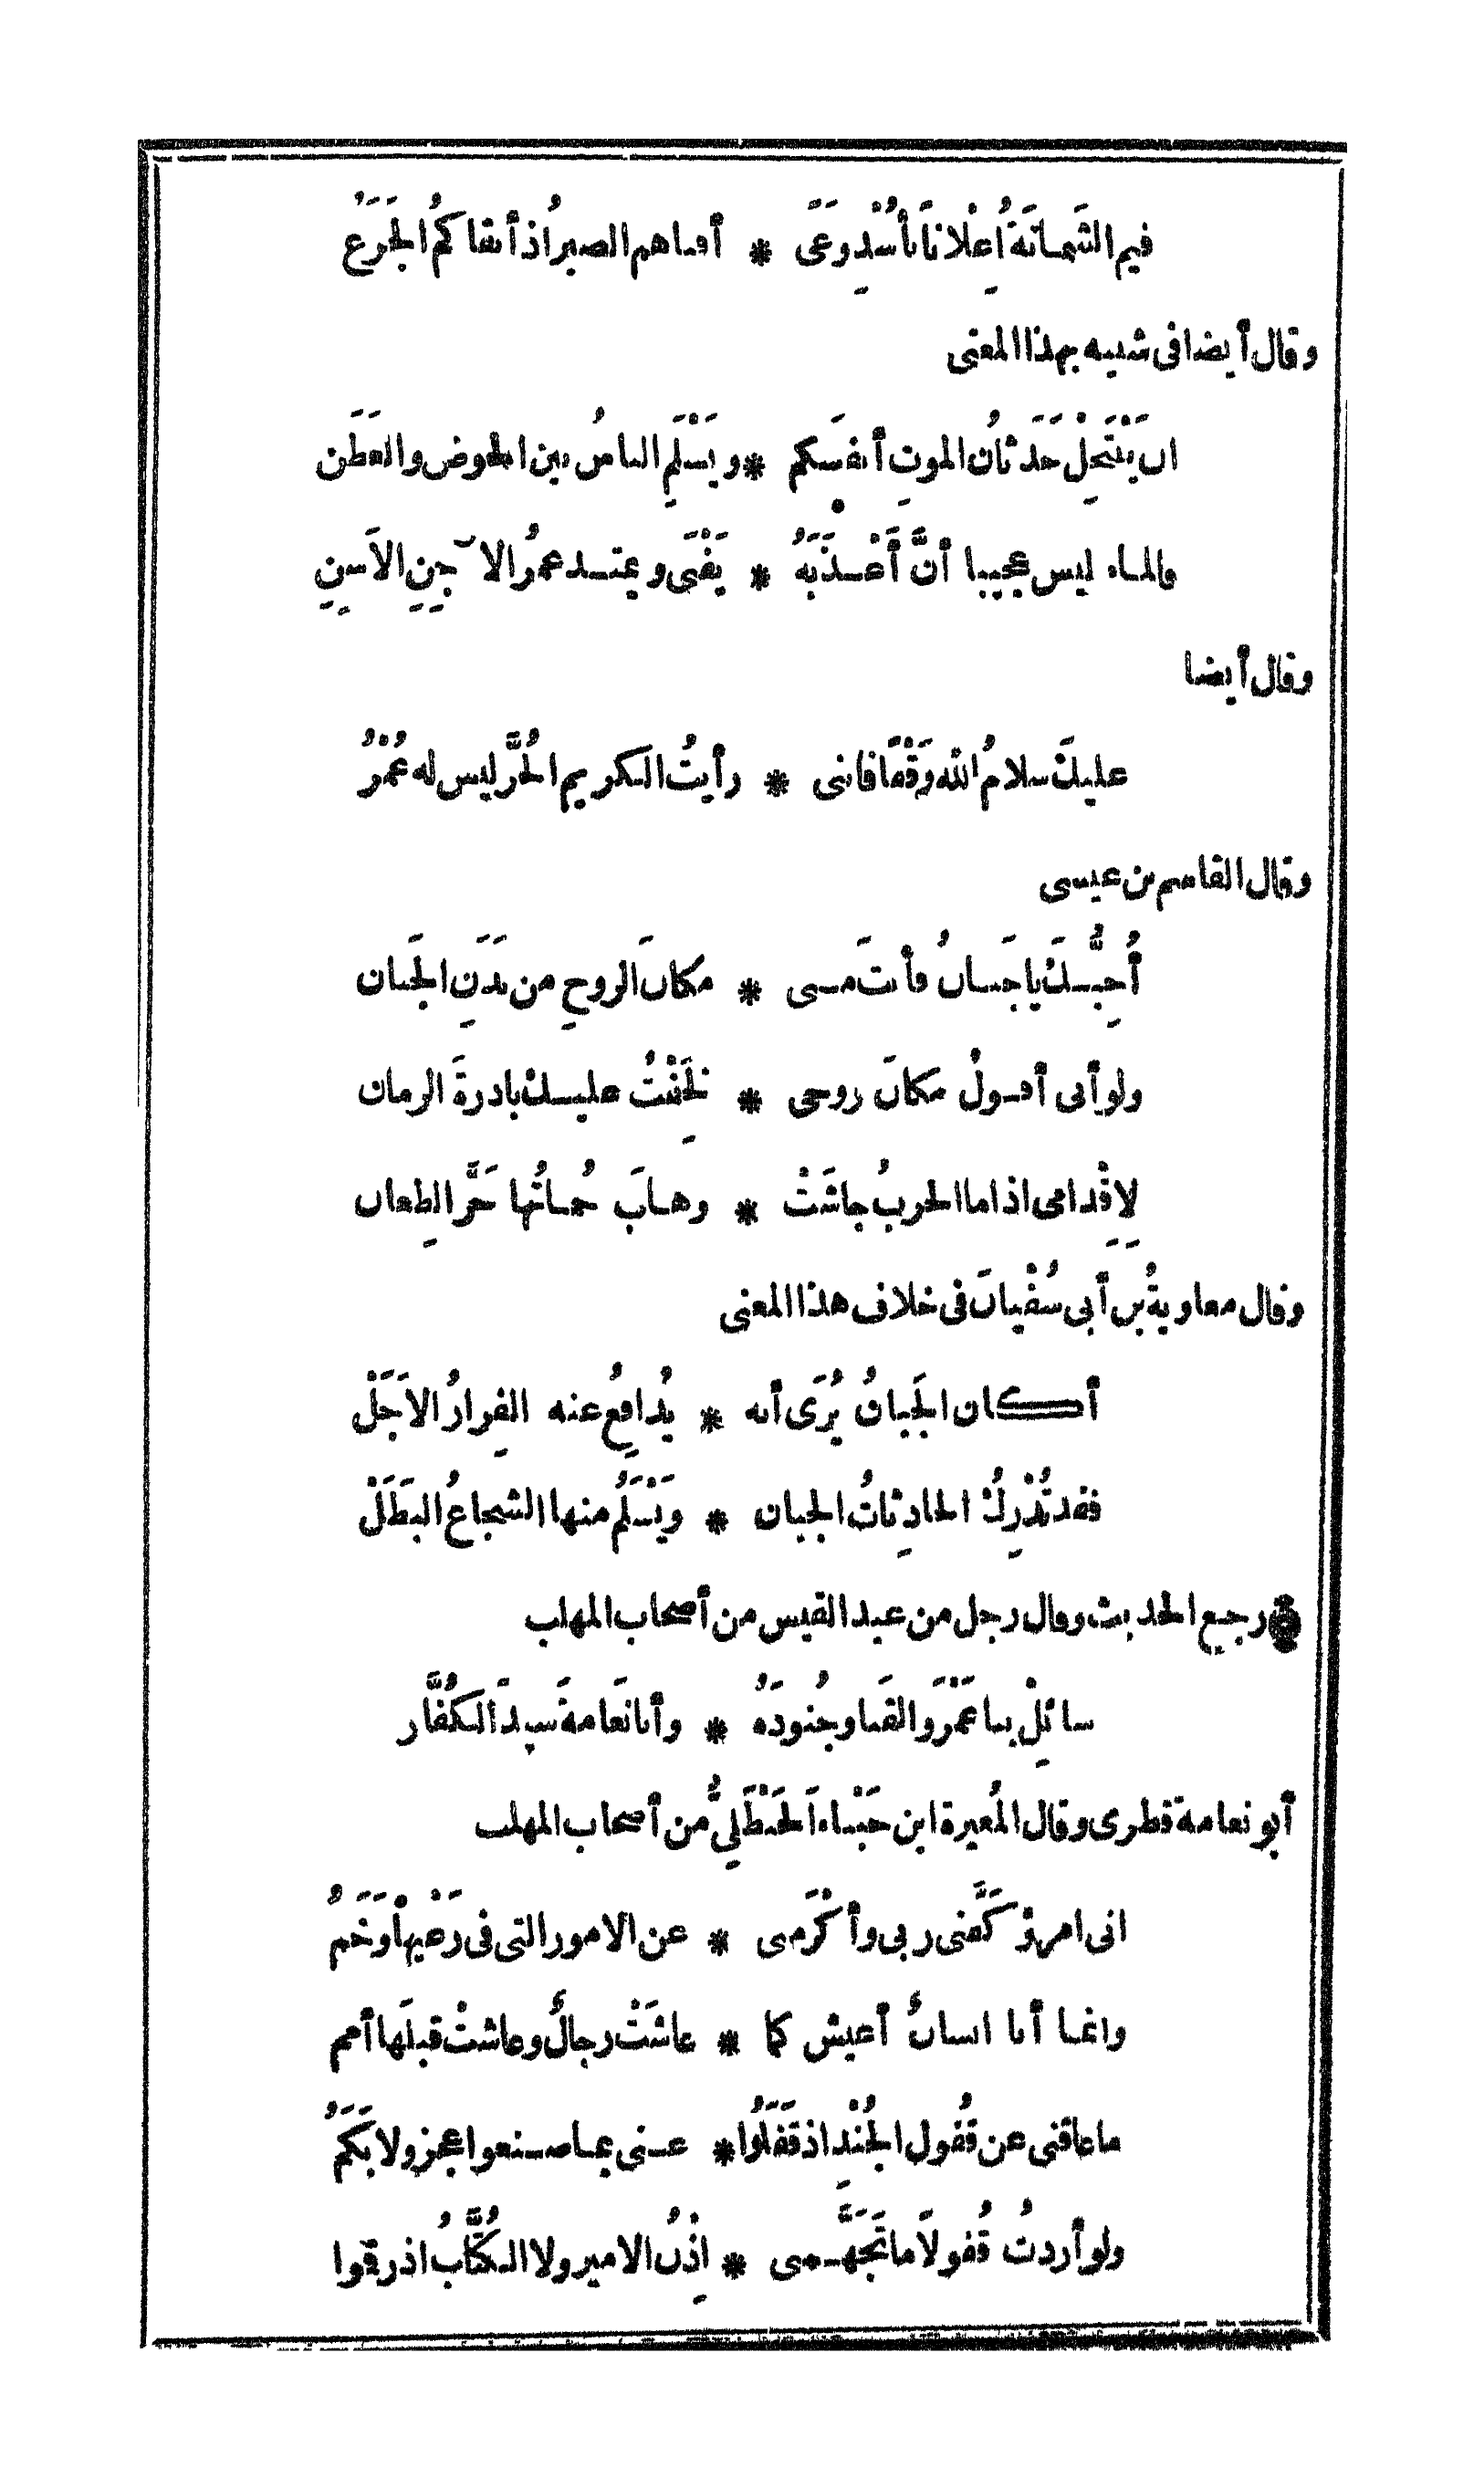 فيم الشَماتَةُ اِعْلاناً بأُسْدِ وَغًى * أفناهم الصبرُ اذ أبقاكمُ الجَزَعُ
وقال أيضا فى شبيه بهذا المعنى
ان يَنْتَحِلْ حَدَثانُ الموتِ أنفسَكم * ويَسْلَمِ الناسُ بين الحوض والعَطَن
فالماء ليس عجيبا أنَّ أَعْذَبَهُ * يَفْنَى ويمتد عمرُ الآجِنِ الاَسِنِ
وقال أيضا
عليكَ سلامُ الله وَقْفًا فاننى * رأيتُ الكريم الحُرَّ ليس له عُمْرُ
وقال القاسم بن عيسى
أُحِبُّكَ يا جَنانُ فأنتَ منى * مكانَ الروحِ من بَدَنِ الجَبان
ولو أنى أقولُ مكانَ روحى * لخَفِفْتُ عليك بادرةَ الزمان
لِاِقْدامى اذا ما الحربُ جاشَتْ * وهابَ حُماتُها حَرَّ الطِعان
وقال معاويةُ بن أبى سُفْيانَ فى خلاف هذا المعنى
أكان الجَبانُ يُرَى أنه * يُدافِعُ عنه الفِرارُ الاَجَلْ
فقد تُدْرِكُ الحادِثاتُ الجبان * ويَسْلَمُ منها الشجاعُ البَطَلْ
رجع الحديث وقال رجل من عبد القيس من أصحاب المهلب
سائِلْ بنا عَمْرَو القَنا وجُنودَهُ * وأبا نَعامةَ سيدَ الكُفَّار
أبو نعامة قطرى وقال المُغيرة ابن حَبْناءَ الحَنْظَلِىُّ من أصحاب المهلب
انى امرؤ كَفَّنى ربى وأكْرَمنى * عن الامور التى فى رَعْيِها وَخَمُ
وانما أنا انسانٌ أعيش كما * عاشَتْ رجالٌ وعاشتْ قبلَها أمم
ما عاقنى عن قُفول الجُنْدِ اذ قَفَلُوا * عنى بما صنعوا عجز ولا بَكَمُ
ولو أردتُ قُفولاً ما تَجَهَّمنى * اِذْنُ الامير ولا الكُتَّابُ اذ رقموا